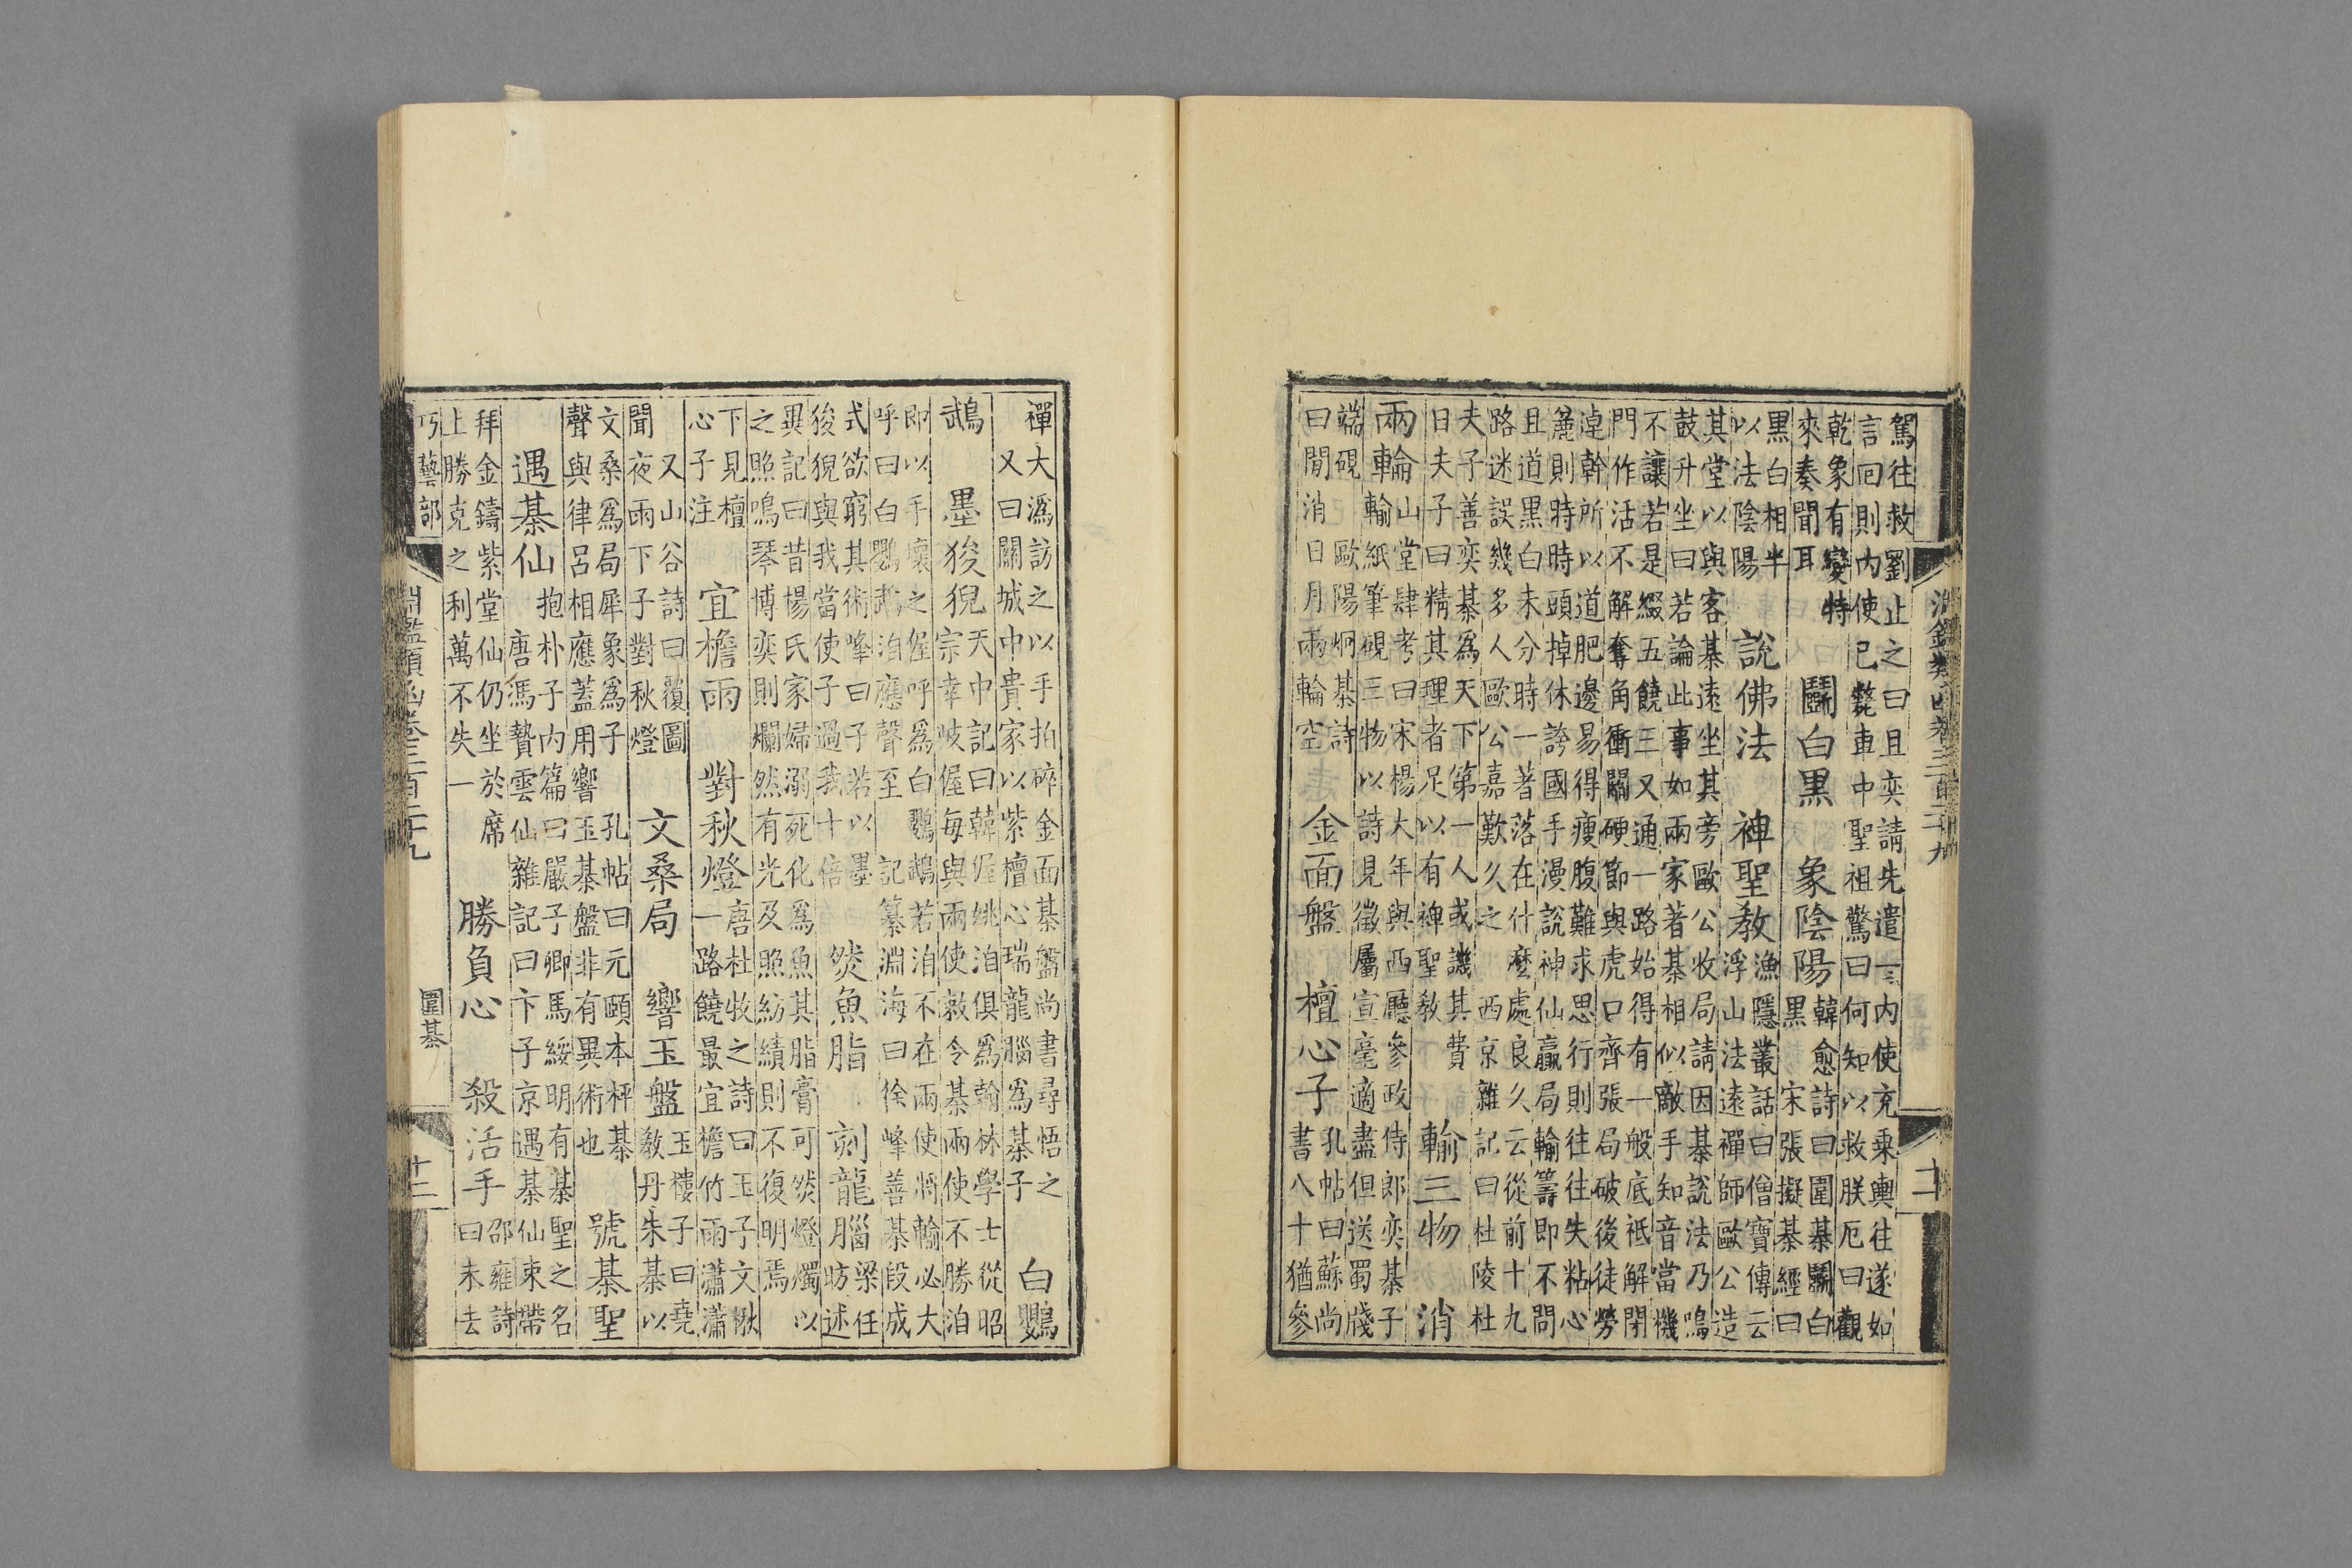 駕往救劉止之曰且奕請先遣一内使充乗輿往遂如
言囘則内使已斃車中聖祖驚曰何知以救朕厄曰觀
乾象有變特
來奏聞耳
鬬白黒 象陰陽
韓愈詩曰圍棊鬬白
黒宋張擬棊經曰
黒白相半
以法陰陽
說佛法 裨聖教
漁隱叢話曰僧寶傳云
浮山法遠禪師歐公造
其堂以與客棊遠坐其旁歐公收局請因棊說法乃鳴
鼓升坐曰若論此事如兩家著棊相似敵手知音當機
不讓若是綴五饒三又通一路始得有一般底祇解閉
門作活不解奪角衝關硬節與虎口齊張局破後徒勞
逴幹所以道肥邊易得瘦腹難求思行則往往失粘心
麄則時時頭掉休誇國手漫說神仙贏局輸籌即不問
且道黒白未分時一著落在什麽處良久云從前十九
路迷誤幾多人歐公嘉歎久之 西京雜記曰杜陵杜
夫子善奕棊爲天下第一人或譏其費
日夫子曰精其理者足以有裨聖教
輸三物 消
兩輪
山堂肆考曰宋楊大年與西廳參政侍郎奕棊子
輸紙筆硯三物以詩見徵屬宣毫適盡但送蜀牋
端硯 歐陽炯棊詩
曰閒消日月兩輪空
金面盤 檀心子
孔帖曰蘇尚
書八十猶參
禪大潙訪之以手拍碎金面棊盤尚書尋悟之
又曰關城中貴家以紫檀心瑞龍腦爲棊子
白鸚
鵡 墨狻猊
天中記曰韓偓姚洎俱爲翰林學士從昭
宗幸岐偓每與兩使敕令棊兩使不勝洎
即以手壞之偓呼爲白鸚鵡若洎不在兩使將輸必大
呼曰白鸚鵡洎應聲至 記纂淵海曰徐峰善棊段成
式欲窮其術峰曰子若以墨
狻猊與我當使子過我十倍
燃魚脂 刻龍腦
梁任
昉述
異記曰昔楊氏家婦溺死化爲魚其脂膏可燃燈燭以
之照鳴琴博奕則爛然有光及照紡績則不復明焉
下見檀
心子注
宜檐雨 對秋燈
唐杜牧之詩曰玉子文楸
一路饒最宜檐竹雨瀟瀟
又山谷詩曰覆圖
聞夜雨下子對秋燈
文桑局 響玉盤
玉樓子曰堯
教丹朱棊以
文桑爲局犀象爲子 孔帖曰元頤本枰棊
聲與律呂相應蓋用響玉棊盤非有異術也
號棊聖
遇棊仙
抱朴子内篇曰嚴子卿馬綏明有棊聖之名
唐馮贄雲仙雜記曰卞子京遇棊仙束帶
拜金鑄紫堂仙仍坐於席
上勝克之利萬不失一
勝負心 殺活手
邵雍詩
曰未去
巧藝部 淵鑑類函卷三百二十九 圍棊